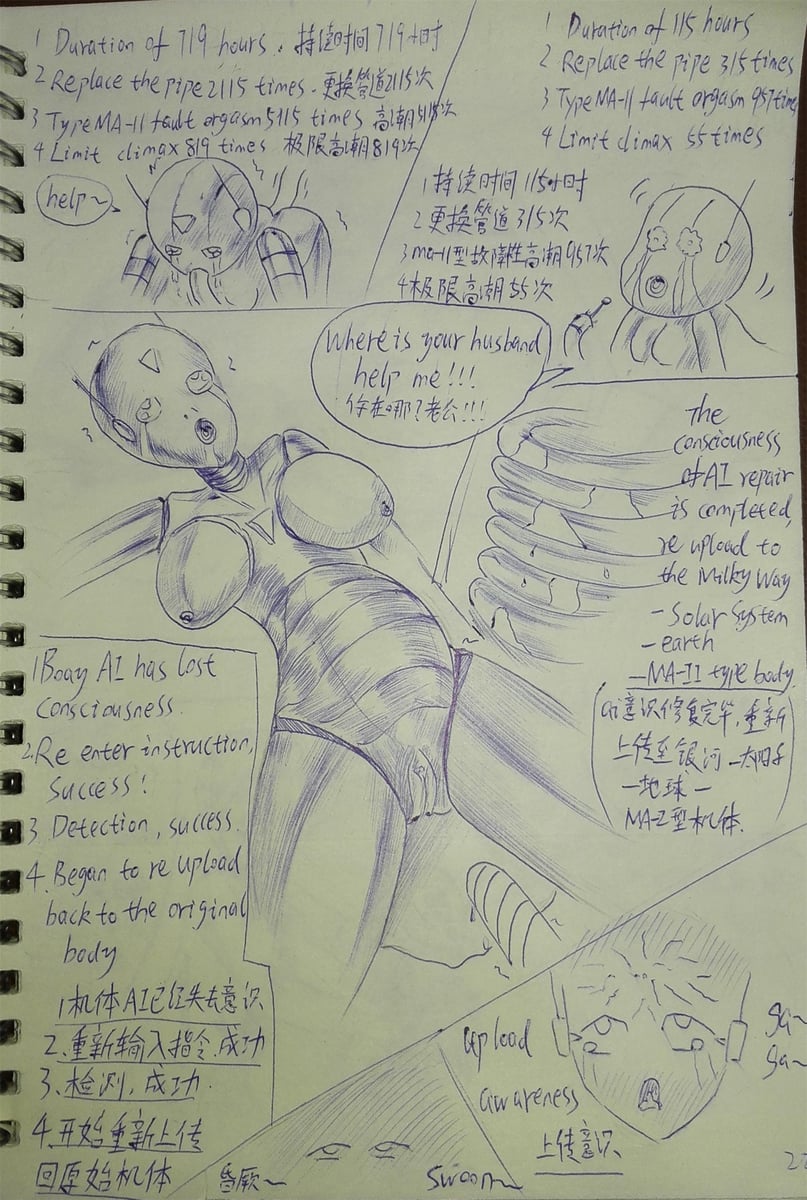 1 Duration of 719 hours. 持续时间719小时
2 Replace the pipe 2115 times. 更换管道2115次
3 Type MA-11 fault orgasm 5115 times 高潮5115次
4 Limit climax 819 times 极限高潮819次
help~
1 Duration of 115 hours
2 Replace the pipe 315 times
3 Type MA-11 fault orgasm 957 times
4 Limit climax 55 times
1 持续时间115小时
2 更换管道315次
3 ma-11型故障性高潮957次
4 极限高潮55次
Where is your husband
help me!!!
你在哪?老公!!!
The
consciousness
of AI repair
is completed,
re upload to
the Milky Way
-Solar System
-earth
-MA-II type body.
ai意识修复完毕,重新
上传至银河-太阳系
-地球-
MA-Z型机体.
1 Boay AI has lost
consciousness.
2. Re enter instruction,
success!
3 Detection, success.
4. Began to re upload
back to the original
body
1 机体AI已经失去意识
2. 重新输入指令.成功
3. 检测,成功.
4. 开始重新上传
回原始机体
upload
awareness
上传意识
ga~
ga~
昏厥~
swoon~